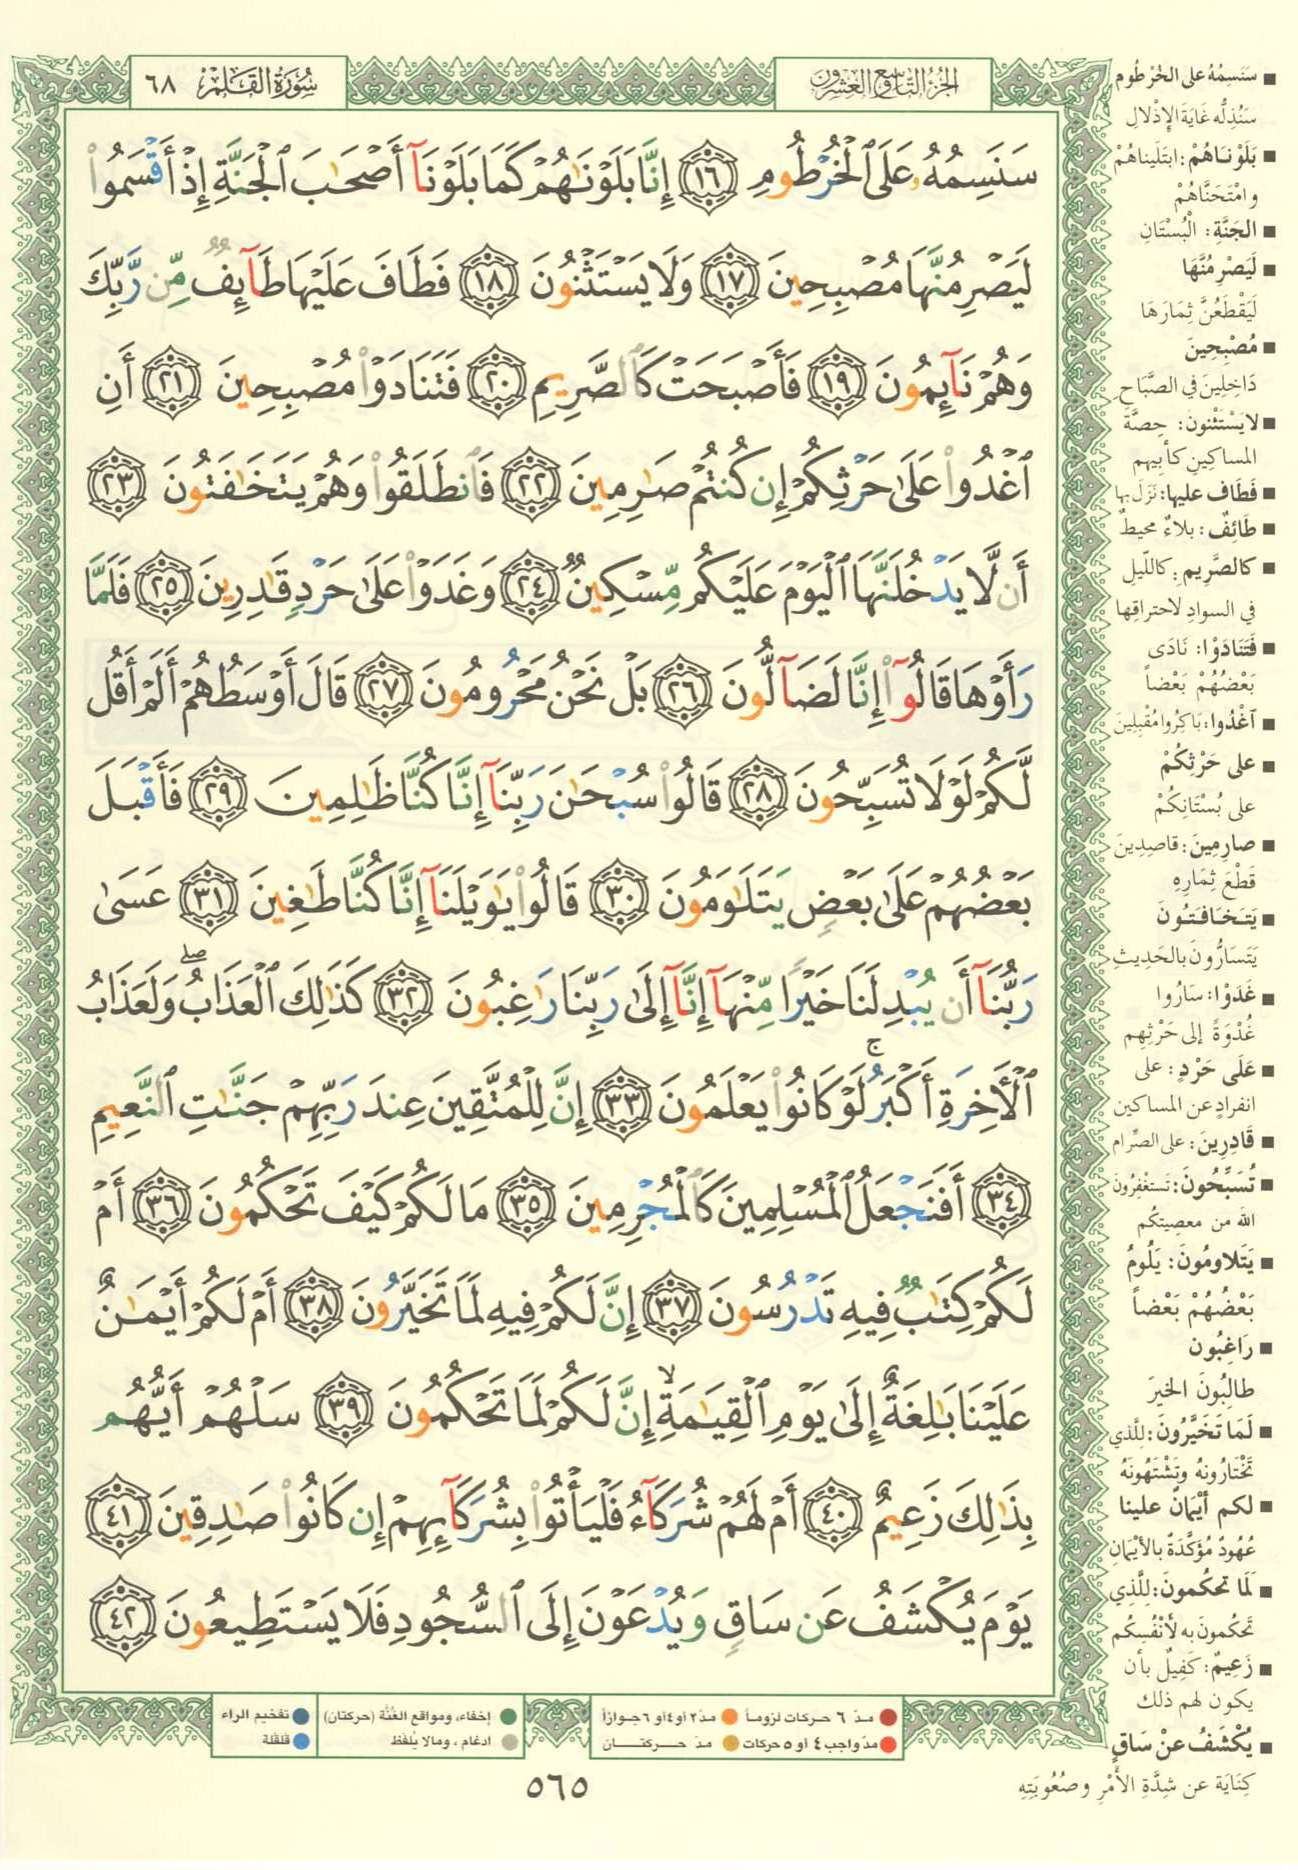 الجزء التاسع والعشرون
سورة القلم ٦٨
سَنَسِمُهُۥ عَلَى ٱلْخُرْطُومِ ١٦ إِنَّا بَلَوْنَٰهُمْ كَمَا بَلَوْنَآ أَصْحَٰبَ ٱلْجَنَّةِ إِذْ أَقْسَمُوا۟
لَيَصْرِمُنَّهَا مُصْبِحِينَ ١٧ وَلَا يَسْتَثْنُونَ ١٨ فَطَافَ عَلَيْهَا طَآئِفٌ مِّن رَّبِّكَ
وَهُمْ نَآئِمُونَ ١٩ فَأَصْبَحَتْ كَٱلصَّرِيمِ ٢٠ فَتَنَادَوْا۟ مُصْبِحِينَ ٢١ أَنِ
ٱغْدُوا۟ عَلَىٰ حَرْثِكُمْ إِن كُنتُمْ صَٰرِمِينَ ٢٢ فَٱنطَلَقُوا۟ وَهُمْ يَتَخَٰفَتُونَ ٢٣
أَن لَّا يَدْخُلَنَّهَا ٱلْيَوْمَ عَلَيْكُم مِّسْكِينٌ ٢٤ وَغَدَوْا۟ عَلَىٰ حَرْدٍ قَٰدِرِينَ ٢٥ فَلَمَّا
رَأَوْهَا قَالُوٓا۟ إِنَّا لَضَآلُّونَ ٢٦ بَلْ نَحْنُ مَحْرُومُونَ ٢٧ قَالَ أَوْسَطُهُمْ أَلَمْ أَقُل
لَّكُمْ لَوْلَا تُسَبِّحُونَ ٢٨ قَالُوا۟ سُبْحَٰنَ رَبِّنَآ إِنَّا كُنَّا ظَٰلِمِينَ ٢٩ فَأَقْبَلَ
بَعْضُهُمْ عَلَىٰ بَعْضٍ يَتَلَٰوَمُونَ ٣٠ قَالُوا۟ يَٰوَيْلَنَآ إِنَّا كُنَّا طَٰغِينَ ٣١ عَسَىٰ
رَبُّنَآ أَن يُبْدِلَنَا خَيْرًا مِّنْهَآ إِنَّآ إِلَىٰ رَبِّنَا رَٰغِبُونَ ٣٢ كَذَٰلِكَ ٱلْعَذَابُ ۖ وَلَعَذَابُ
ٱلْأَخِرَةِ أَكْبَرُ ۚ لَوْ كَانُوا۟ يَعْلَمُونَ ٣٣ إِنَّ لِلْمُتَّقِينَ عِندَ رَبِّهِمْ جَنَّٰتِ ٱلنَّعِيمِ
٣٤ أَفَنَجْعَلُ ٱلْمُسْلِمِينَ كَٱلْمُجْرِمِينَ ٣٥ مَا لَكُمْ كَيْفَ تَحْكُمُونَ ٣٦ أَمْ
لَكُمْ كِتَٰبٌ فِيهِ تَدْرُسُونَ ٣٧ إِنَّ لَكُمْ فِيهِ لَمَا تَخَيَّرُونَ ٣٨ أَمْ لَكُمْ أَيْمَٰنٌ
عَلَيْنَا بَٰلِغَةٌ إِلَىٰ يَوْمِ ٱلْقِيَٰمَةِ ۙ إِنَّ لَكُمْ لَمَا تَحْكُمُونَ ٣٩ سَلْهُمْ أَيُّهُم
بِذَٰلِكَ زَعِيمٌ ٤٠ أَمْ لَهُمْ شُرَكَآءُ فَلْيَأْتُوا۟ بِشُرَكَآئِهِمْ إِن كَانُوا۟ صَٰدِقِينَ ٤١
يَوْمَ يُكْشَفُ عَن سَاقٍ وَيُدْعَوْنَ إِلَى ٱلسُّجُودِ فَلَا يَسْتَطِيعُونَ ٤٢
■ سَنَسِمُهُ على الخُرْطُوم
سَنُذِلُّه غَايَةَ الإِذْلالِ
■ بَلَوْنَاهُمْ: ابتَلَيناهُمْ
وامْتَحَنَّاهُمْ
■ الجَنَّةِ: الْبُسْتَانِ
■ لَيَصْرِمُنَّهَا
لَيَقْطَعُنَّ ثِمَارَهَا
■ مُصْبِحِينَ
دَاخِلِينَ في الصَّبَاحِ
■ لايَسْتَثْنونَ: حِصَّةَ
المساكِينِ كأبيهِم
■ فَطَاف عليها: نَزَلَ بها
■ طَائِفٌ: بلاءٌ محيطٌ
■ كالصَّرِيمِ: كاللّيلِ
في السوادِ لاحتراقِها
■ فَتَنَادَوْا: نَادَى
بَعْضُهُمْ بَعْضاً
■ اغْدُوا: بَاكِرُوا مُقْبِلِينَ
■ على حَرْثِكُمْ
على بُسْتَانِكُمْ
■ صارِمِينَ: قاصِدِينَ
قَطْعَ ثِمَارِهِ
■ يَتَخَافَتُونَ
يَتَسَارُّونَ بالحَدِيثِ
■ غَدَوْا: سَارُوا
غُدْوَةً إلى حَرْثِهِم
■ عَلَى حَرْدٍ: على
انفرادٍ عن المساكين
■ قَادِرِينَ: على الصِّرام
■ تُسَبِّحُونَ: تَستَغْفِرُونَ
الله من معصِيتِكُم
■ يَتَلاومُونَ: يَلُومُ
بَعْضُهُمْ بَعْضاً
■ رَاغِبُون
طالِبُونَ الخيرَ
■ لَمَا تَخَيَّرُونَ: لِلَّذي
تَخْتَارُونهُ وتَشْتَهُونَهُ
■ لكم أيْمَانٌ علينا
عُهُودٌ مُؤكَّدَةٌ بالأيْمَانِ
■ لَمَا تحكُمونَ: لِلَّذِي
تَحكُمونَ به لأنْفُسِكُم
■ زَعِيمٌ: كَفِيلٌ بأن
يكون لهم ذلك
■ يُكْشَفُ عنْ سَاقٍ
كِنَايَة عن شِدَّةِ الأَمْرِ وصُعُوبَتِهِ
مدّ ٦ حركات لزوماً مدّ ٢ أو ٤ أو ٦ جوازاً
مدّ واجب ٤ أو ٥ حركات مدّ حركتان
إخفاء، ومواقع الغُنَّة (حركتان) تفخيم الراء
ادغام ، ومالا يُلفَظ قلقلة
٥٦٥